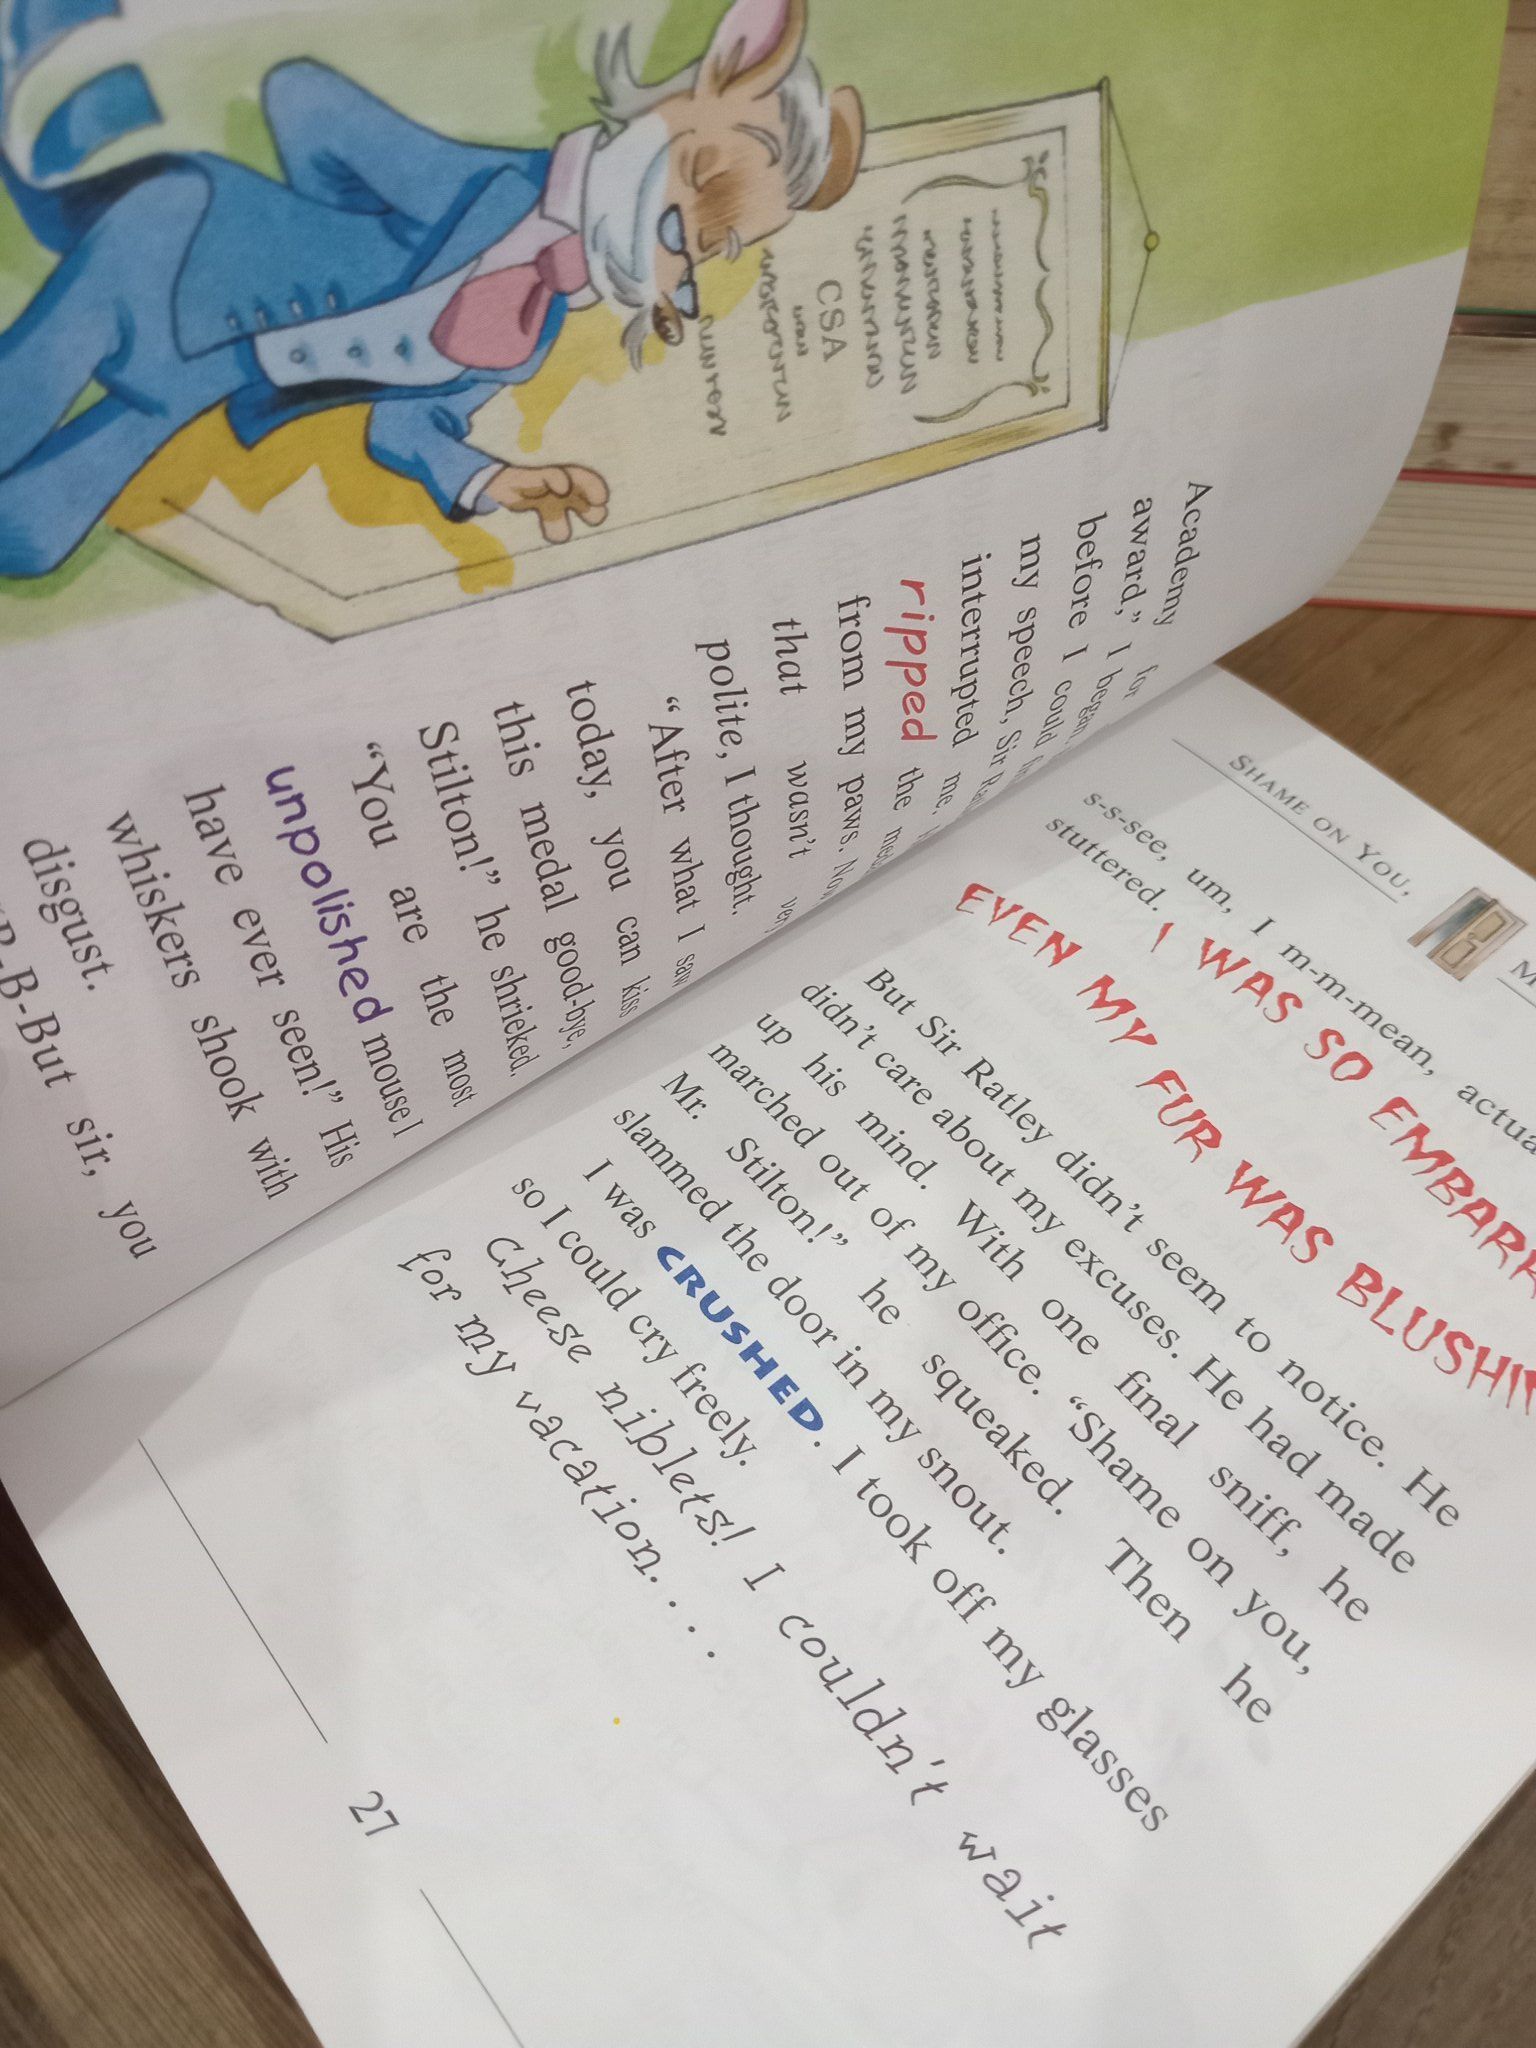 CSA
Academy for
award,” I began.
before I could
my speech, Sir
interrupted me.
ripped the
from my paws. Now
that wasn’t very
polite, I thought.
“After what I saw
today, you can kiss
this medal good-bye,
Stilton!” he shrieked.
“You are the most
unpolished mouse I
have ever seen!” His
whiskers shook with
disgust.
sir, you
SHAME ON YOU,
s-s-see, um, I m-m-mean,
stuttered. I WAS SO
EVEN MY FUR WAS
But Sir Ratley didn’t seem to notice. He
didn’t care about my excuses. He had made
up his mind. With one final sniff, he
marched out of my office. “Shame on you,
Mr. Stilton!” he squeaked. Then he
slammed the door in my snout.
I was CRUSHED. I took off my glasses
so I could cry freely.
Cheese niblets! I couldn't wait
for my vacation. . . .
27